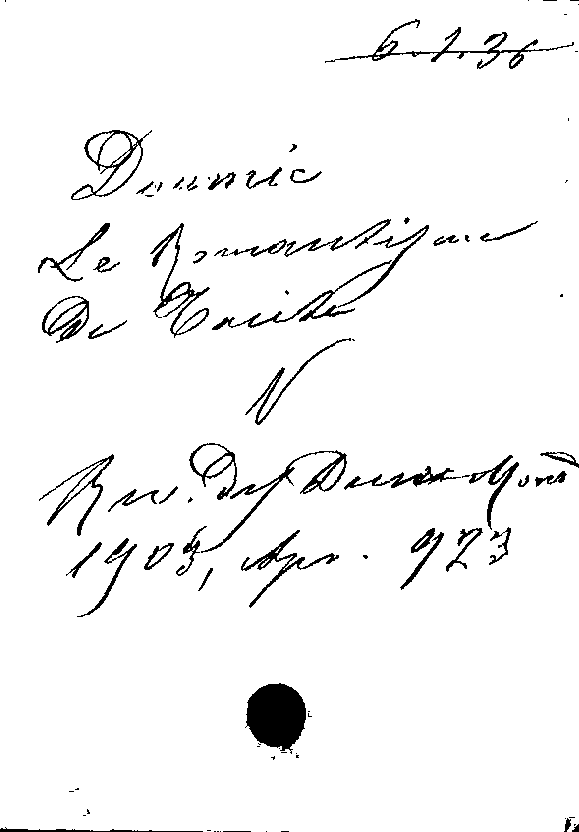 6.1.36
Doumic
Le Romantique
De Tacite
V
Rev. des Deux Mond
1903, Apr. 923